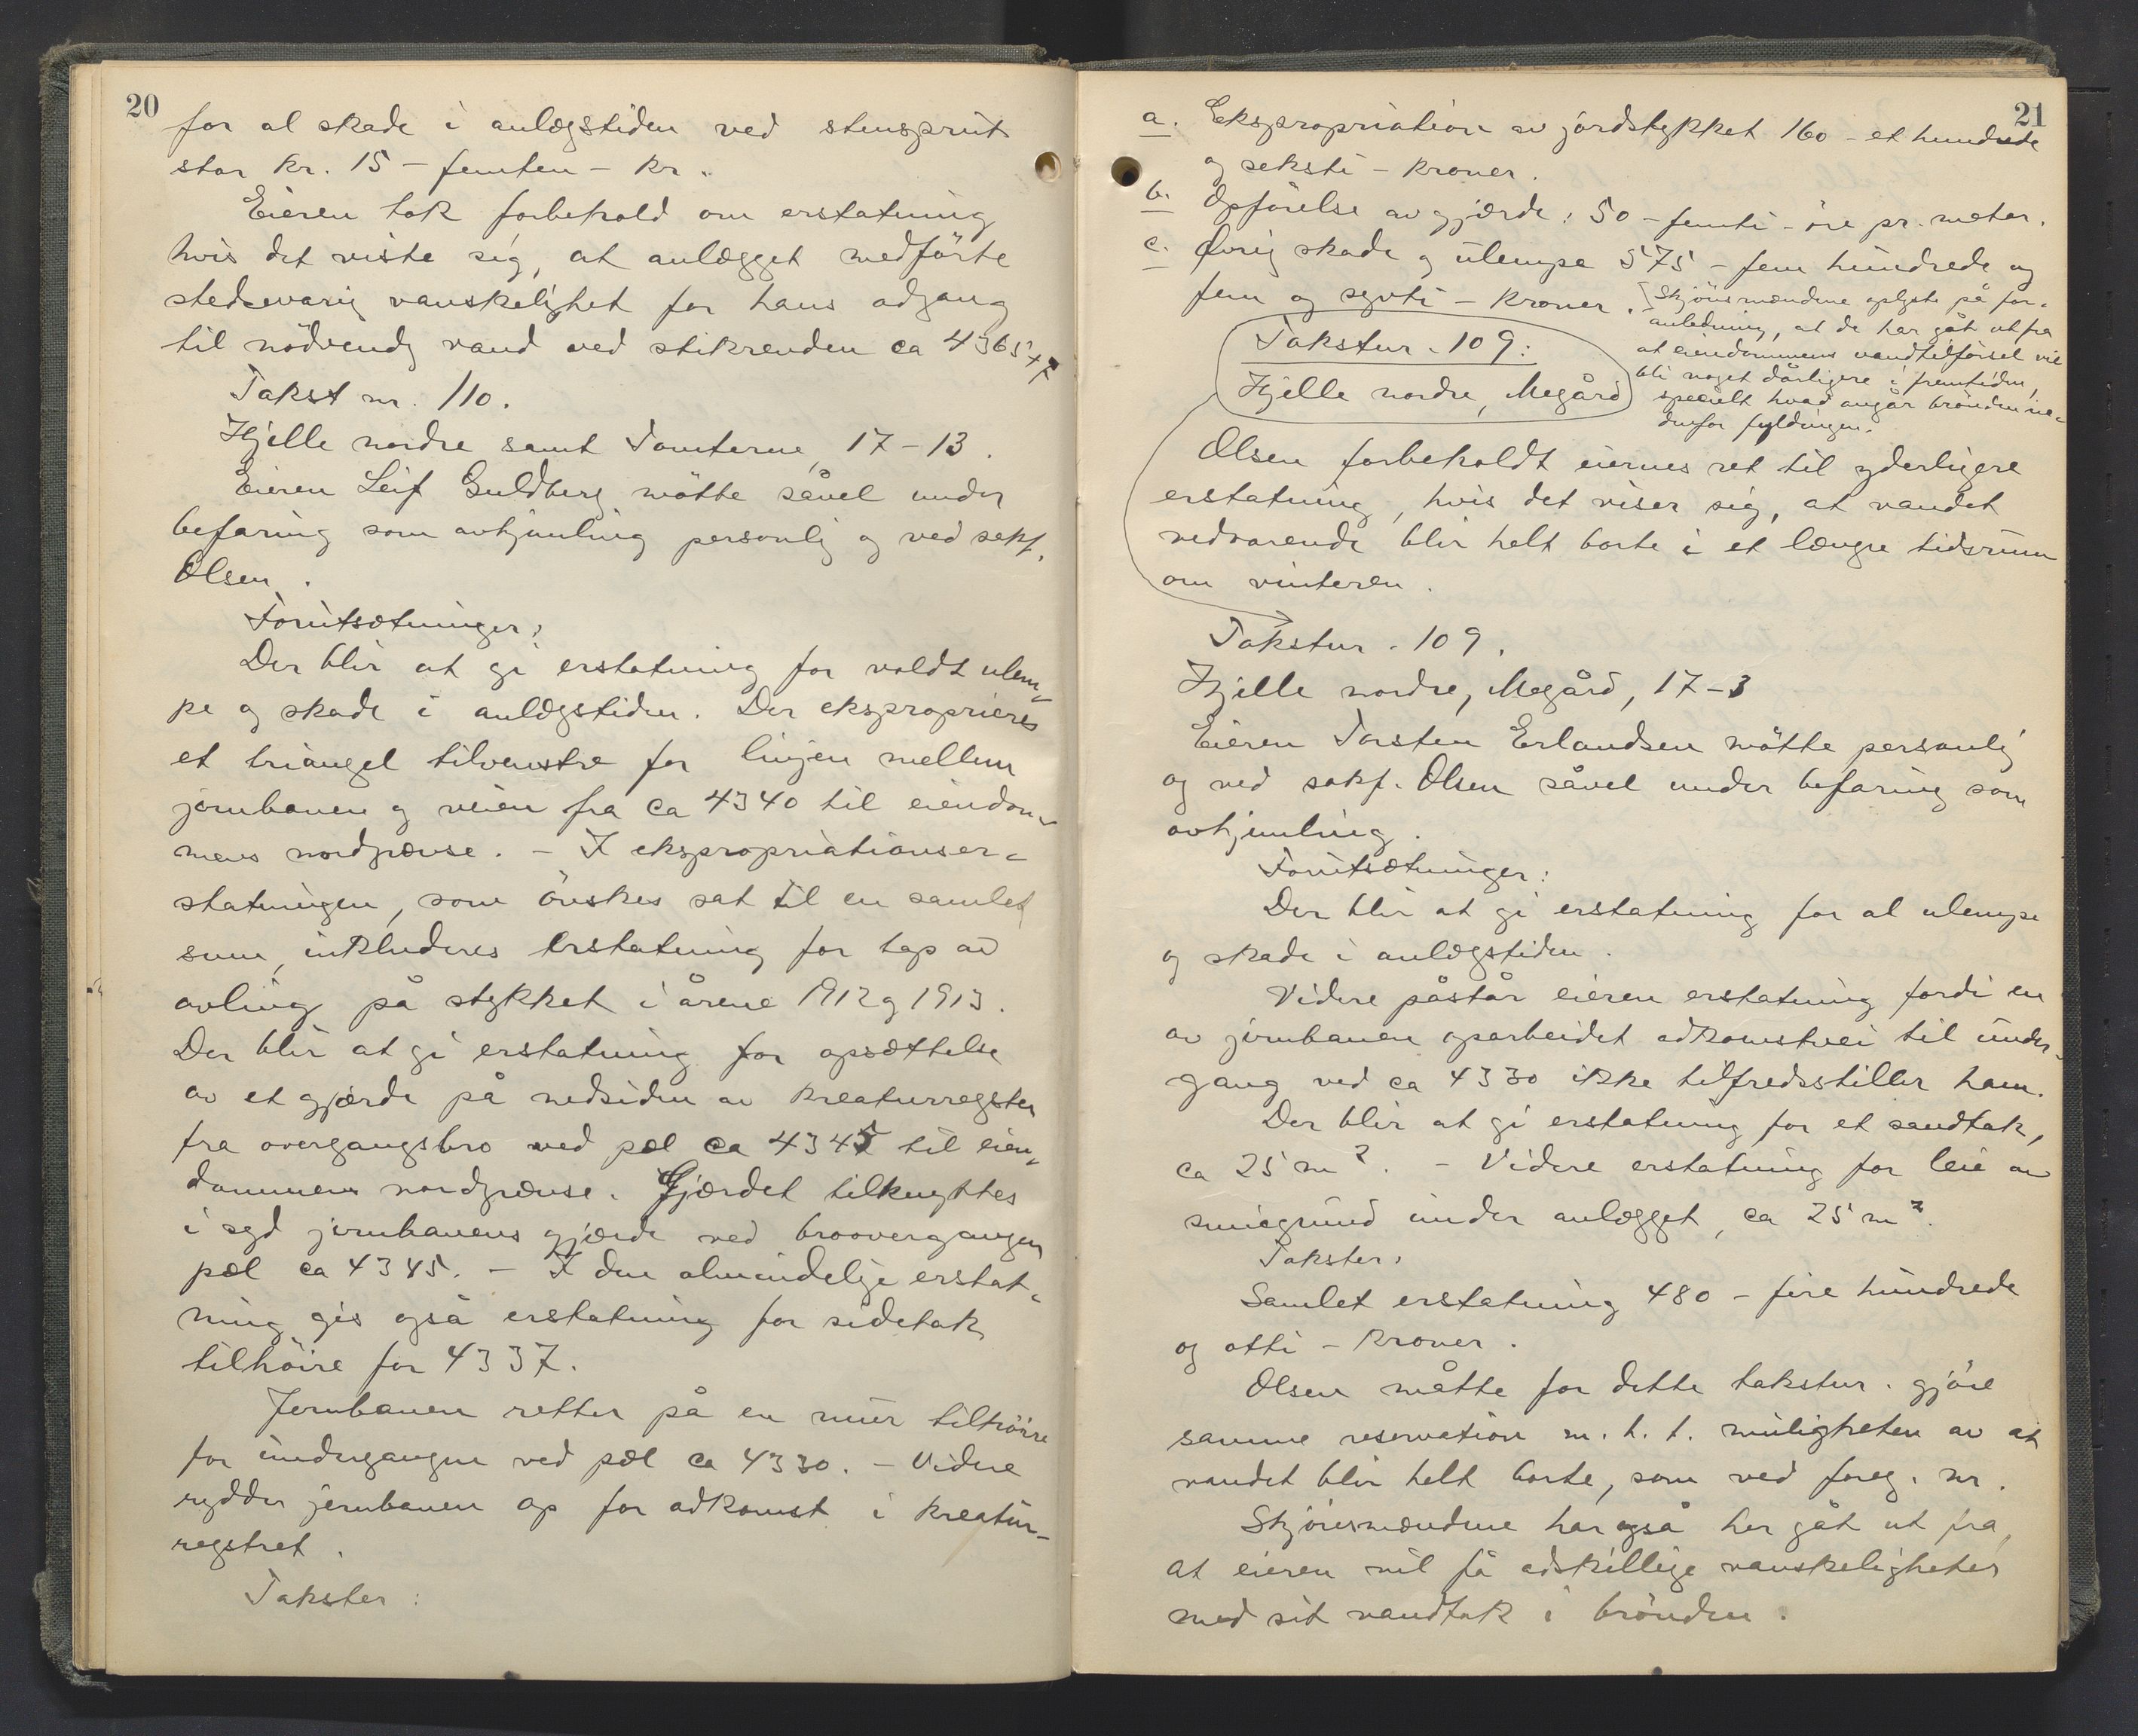 20
for al skade i anlægstiden ved stensprut
stor kr. 15 – femten – kr.
Eieren tok forbehold om erstatning
hvis det viste sig, at anlægget medförte
stedsevarig vanskelighet for hans adgang
til nödvendig vand ved stikrenden ca 4365+7
Takst nr. 110.
Hjelle nordre samt Tomterne, 17–13.
Eieren Leif Guldberg mötte såvel under
befaring som avhjemling personlig og ved sakf.
Olsen.
Forutsætninger:
Der blir at gi erstatning for voldt ulem-
pe og skade i anlægstiden. Der eksproprieres
et triangel tilvenstre for linjen mellem
jernbanen og veien fra ca 4340 til eiendom-
mens nordgrænse. – I ekspropriationser-
statningen, som önskes sat til en samlet
sum, inkluderes erstatning for tap av
avling på stykket i årene 1912 og 1913.
Der blir at gi erstatning for opsættelse
av et gjærde på nedsiden av kreaturregsten
fra overgangsbro ved pæl ca 4345 til eien-
dommens nordgrænse. Gjærdet tilknyttes
i syd jernbanens gjærde ved broovergangen
pæl ca 4345. – I den almindelige erstat-
ning gis også erstatning for sidetak
tilhöire for 4337.
Jernbanen retter på en mur tilhöire
for undergangen ved pæl ca 4330. – Videre
rydder jernbanen op for adkomst i kreatur-
regstret.
Takster:
21
a. Ekspropriation av jordstykket 160 – et hundrede
og seksti – kroner.
b. Opförelse av gjærde: 50 – femti – öre pr. meter.
c. Övrig skade og ulempe 575 – fem hundrede og
fem og sytti – kroner.
Skjönsmændene oplyste på for-
anledning, at de har gåt ut fra
at eiendommens vandtilförsel vil
bli noget dårligere i fremtiden,
specielt hvad angår brönden ne-
denfor fyldingen.
Takstnr. 109:
Hjelle nordre, Megård
Olsen forbeholdt eiernes ret til yderligere
erstatning, hvis det viser sig, at vandet
vedvarende blir helt borte i et længre tidsrum
om vinteren.
Takstnr. 109.
Hjelle nordre, Megård, 17–3
Eieren Torsten Erlandsen mötte personlig
og ved sakf. Olsen såvel under befaring som
avhjemling.
Forutsætninger:
Der blir at gi erstatning for al ulempe
og skade i anlægstiden.
Videre påstår eieren erstatning fordi en
av jernbanen oparbeidet adkomstvei til under-
gang ved ca 4330 ikke tilfredsstiller ham.
Der blir at gi erstatning for et sandtak,
ca 25 m². – Videre erstatning for leie av
smiegrund under anlægget, ca 25 m².
Takster:
Samlet erstatning 480 – fire hundrede
og otti – kroner.
Olsen måtte for dette takstnr. gjöre
samme reservation m. h. t. muligheten av at
vandet blir helt borte, som ved foreg. nr.
Skjönsmændene har også her gåt ut fra,
at eieren vil få adskillige vanskeligheter
med sit vandtak i brönden.